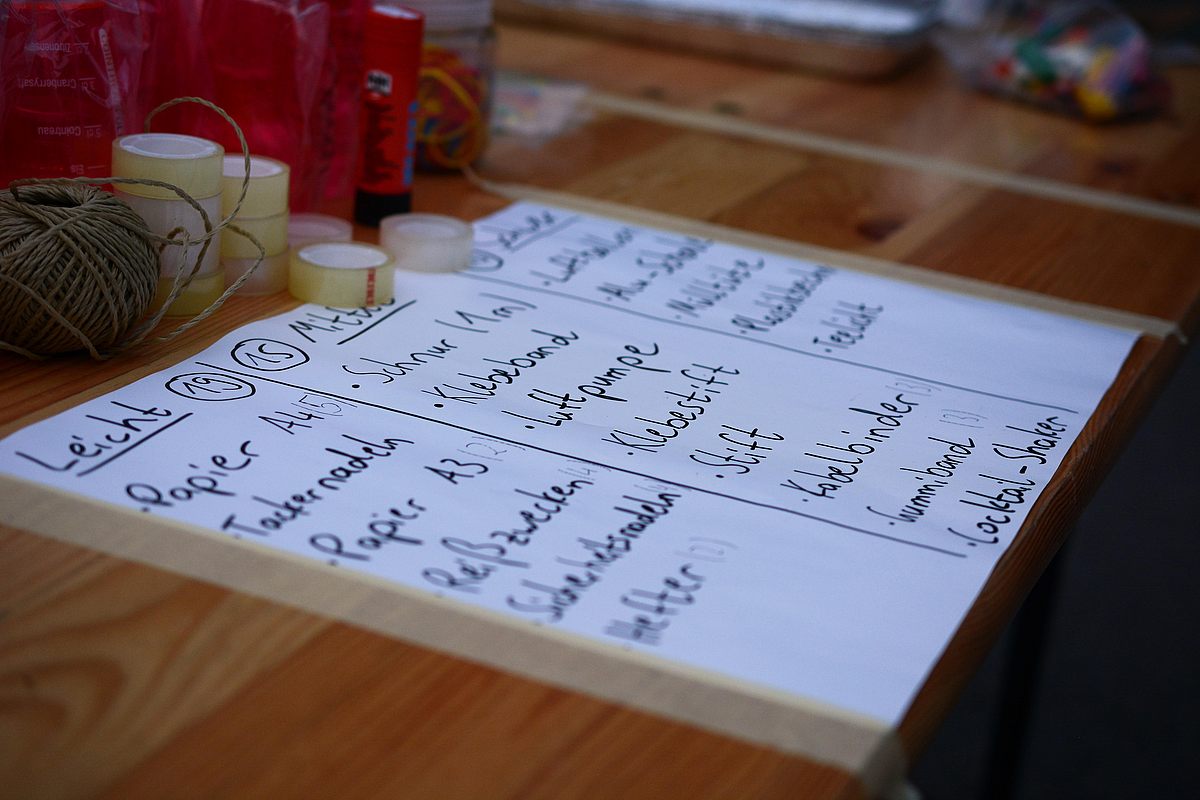 Duonensaft
Cranberrysaft
Cointreau
Eis
Pritt
Leicht 19
• Papier A4 (5)
• Tackernadeln
• Papier A3 (2)
• Reißzwecken (4)
• Sicherheitsnadeln
• Hefter (2)
15 Mittel
• Schnur (1m)
• Klebeband
• Luftpumpe
• Klebestift
• Stift
• Kabelbinder (3)
• Gummiband (3)
• Cocktail-Shaker
• Luftballon
• Alu-Schale
• Mülltüte
• Teelicht